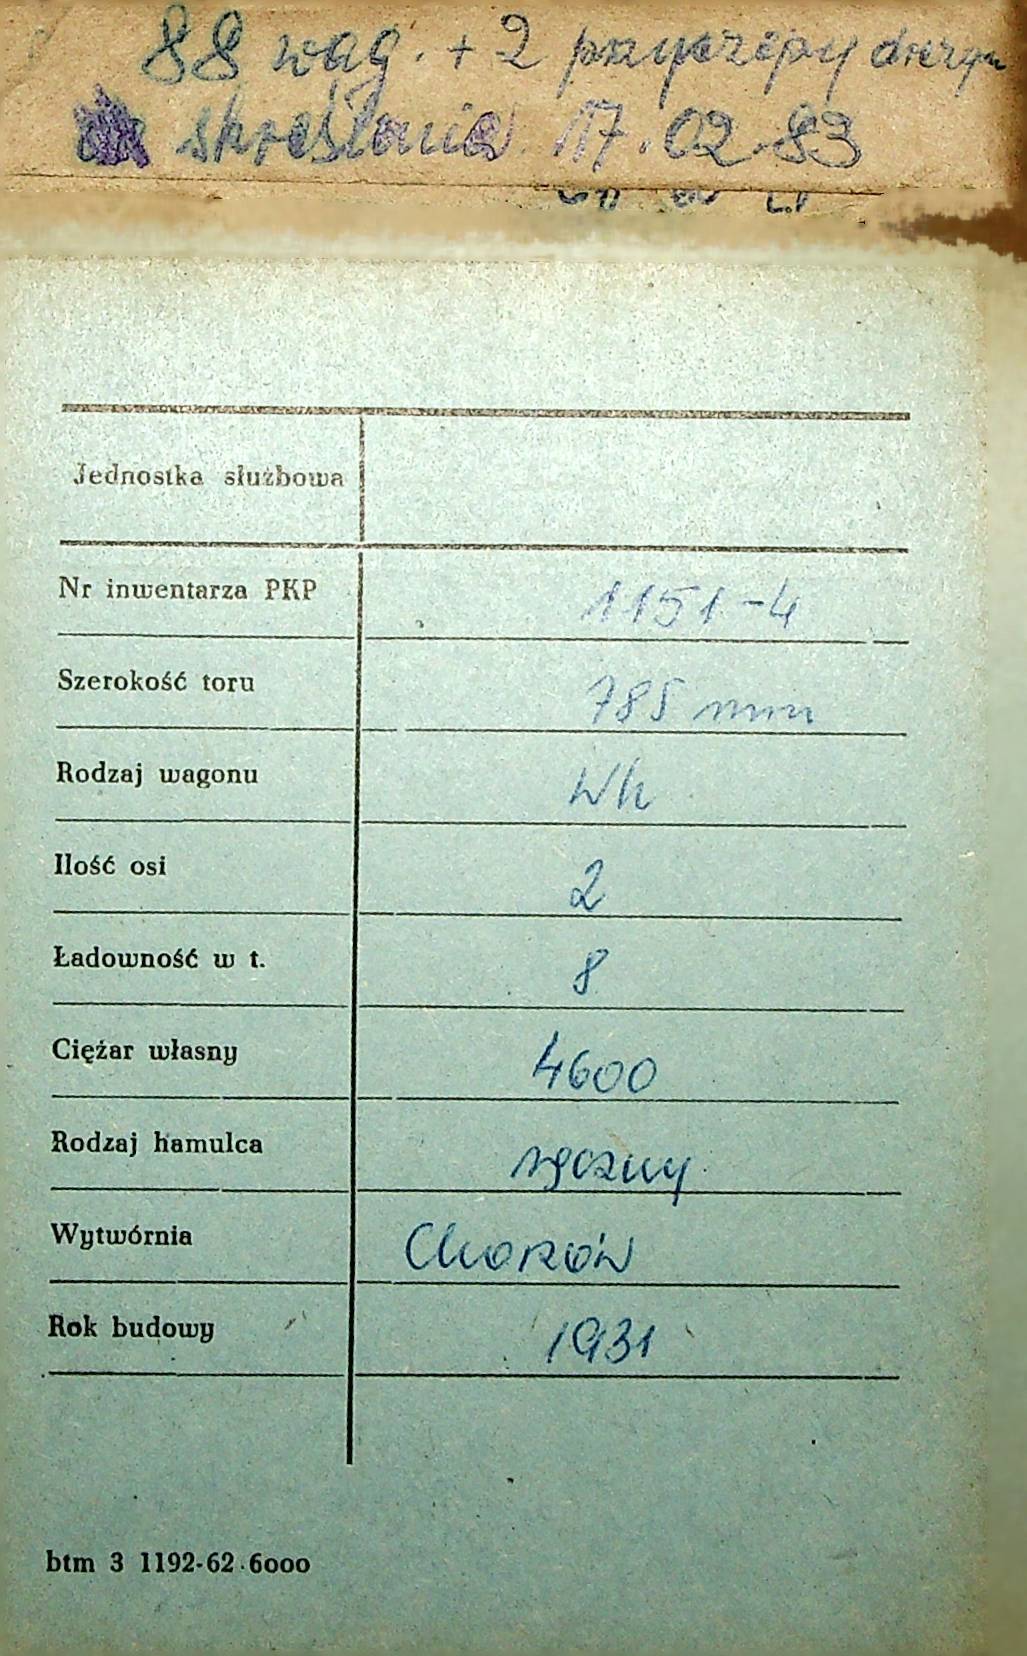 88 wag. + 2 przyczepy drezyn
skreślenie 17.02.83
Jednostka służbowa
Nr inwentarza PKP 1151-4
Szerokość toru 785 mm
Rodzaj wagonu Wh
Ilość osi 2
Ładowność w t. 8
Ciężar własny 4600
Rodzaj hamulca ręczny
Wytwórnia Chorzów
Rok budowy 1931
btm 3 1192-62 6000